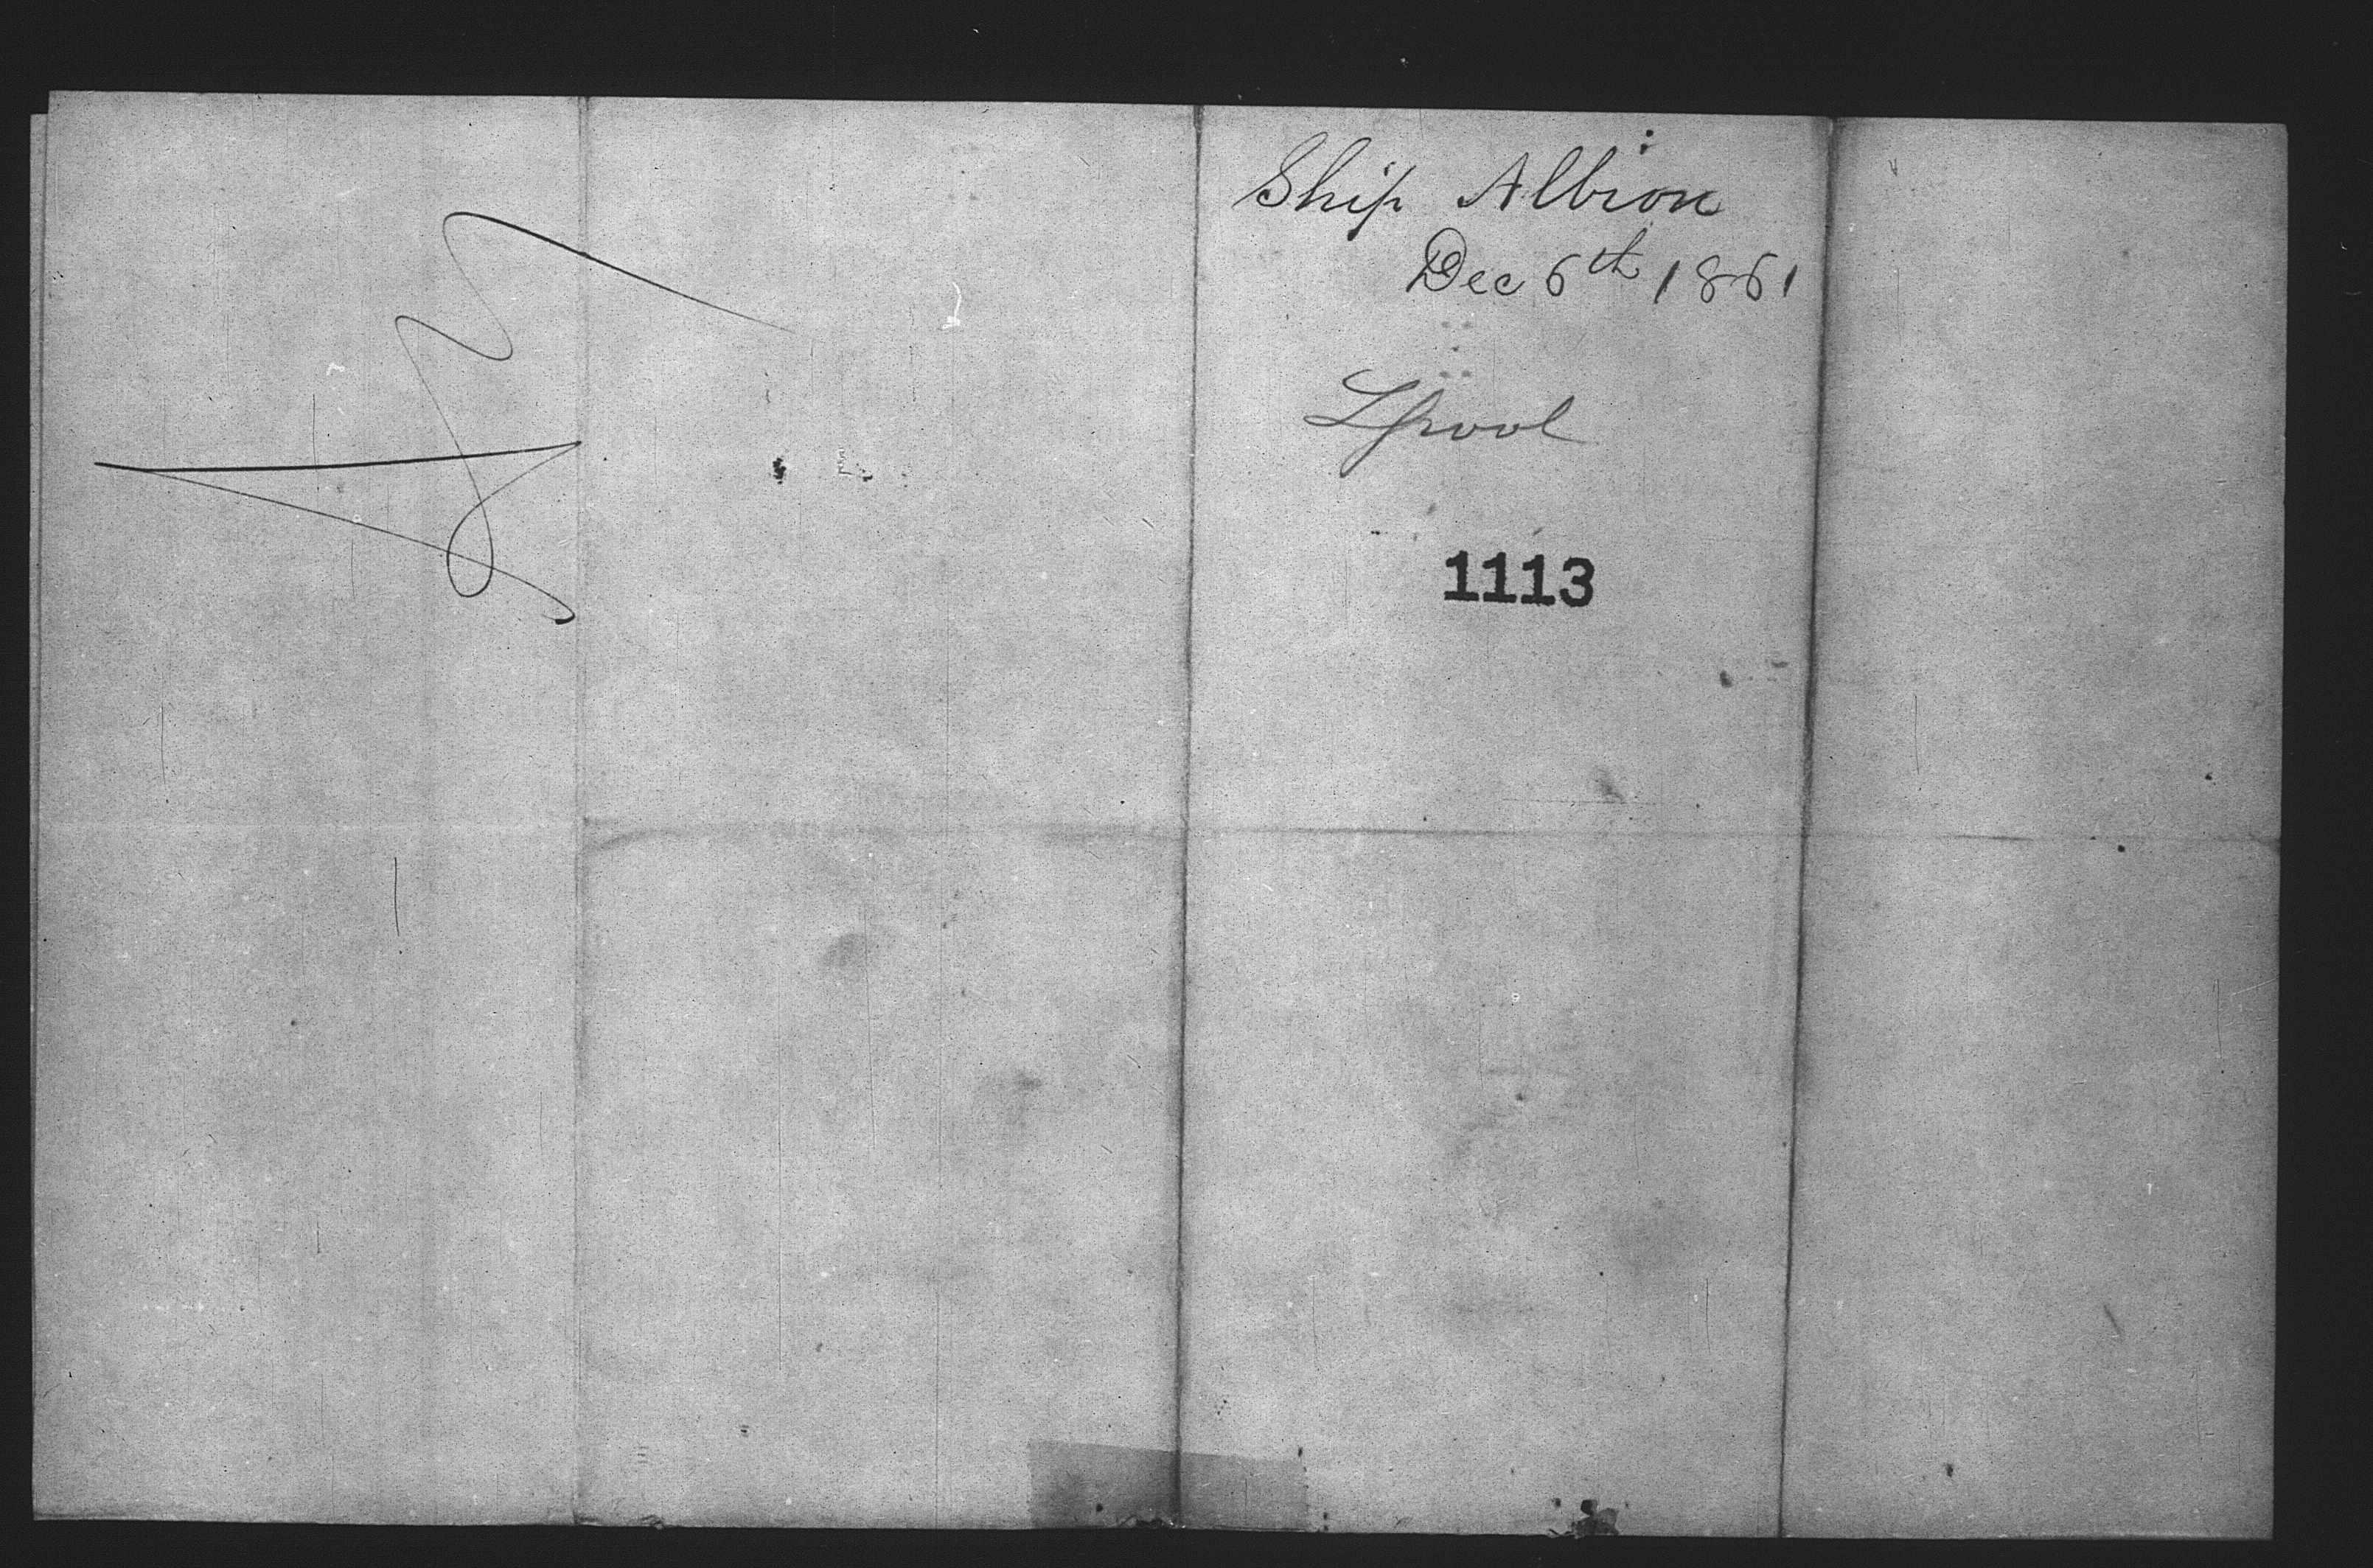 Ship Albion
Dec 6th 1861
Lpool
1113